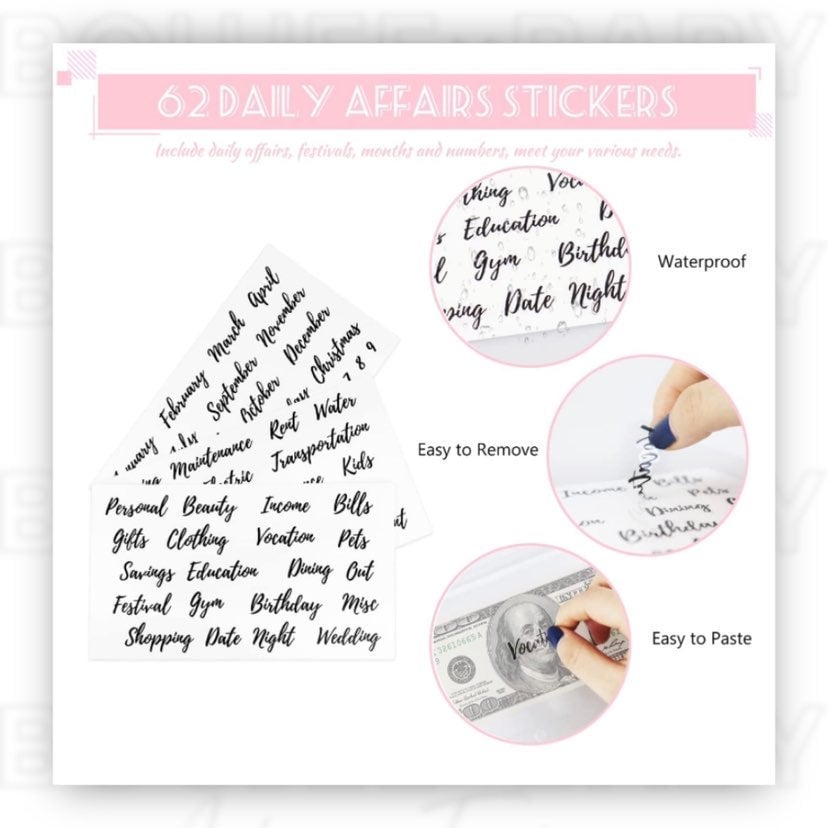 62 DAILY AFFAIRS STICKERS
Include daily affairs, festivals, months and numbers, meet your various needs.
thing
Education
Gym Birthd
Date Night
Waterproof
March April
February September November
October December
Christmas
7 8 9
Maintenance Rent Water
Transportation
Kids
Easy to Remove
Income Bills
Pets
Dining
Birthday
Personal Beauty Income Bills
Gifts Clothing Vocation Pets
Savings Education Dining Out
Festival Gym Birthday Misc
Shopping Date Night Wedding
Easy to Paste